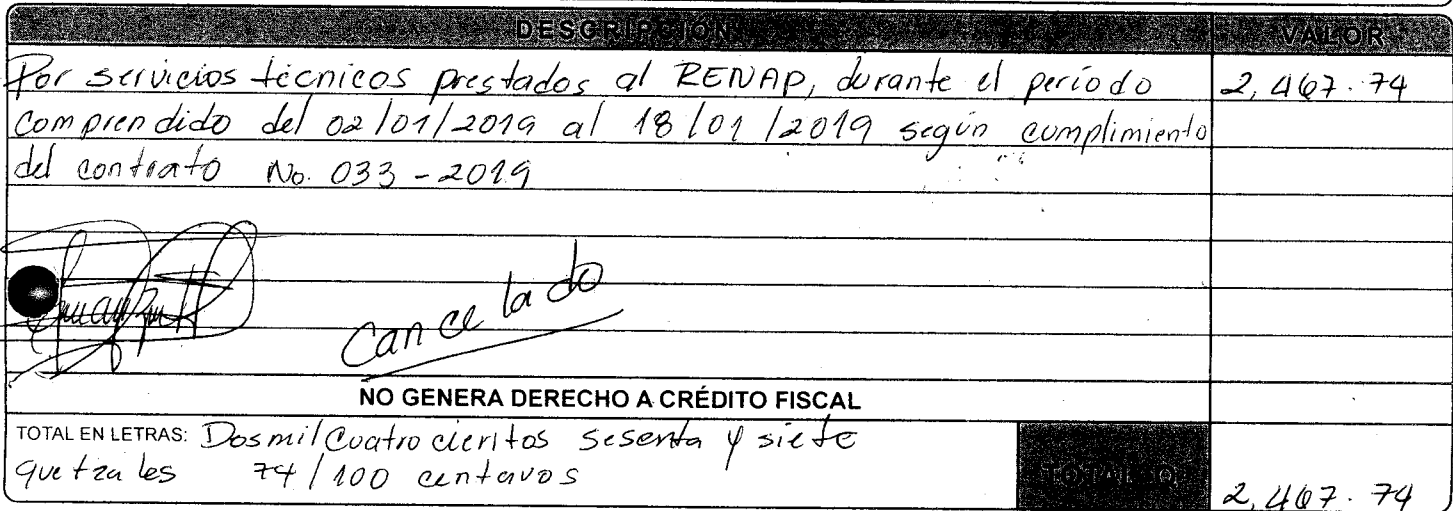 DESCRIPCIÓN VALOR
Por servicios técnicos prestados al RENAP, durante el período 2,467.74
comprendido del 02/01/2019 al 18/01/2019 según cumplimiento
del contrato No. 033-2019
Cancelado
NO GENERA DERECHO A CRÉDITO FISCAL
TOTAL EN LETRAS: Dos mil Cuatrocientos sesenta y siete
quetzales 74/100 centavos TOTAL Q. 2,467.74